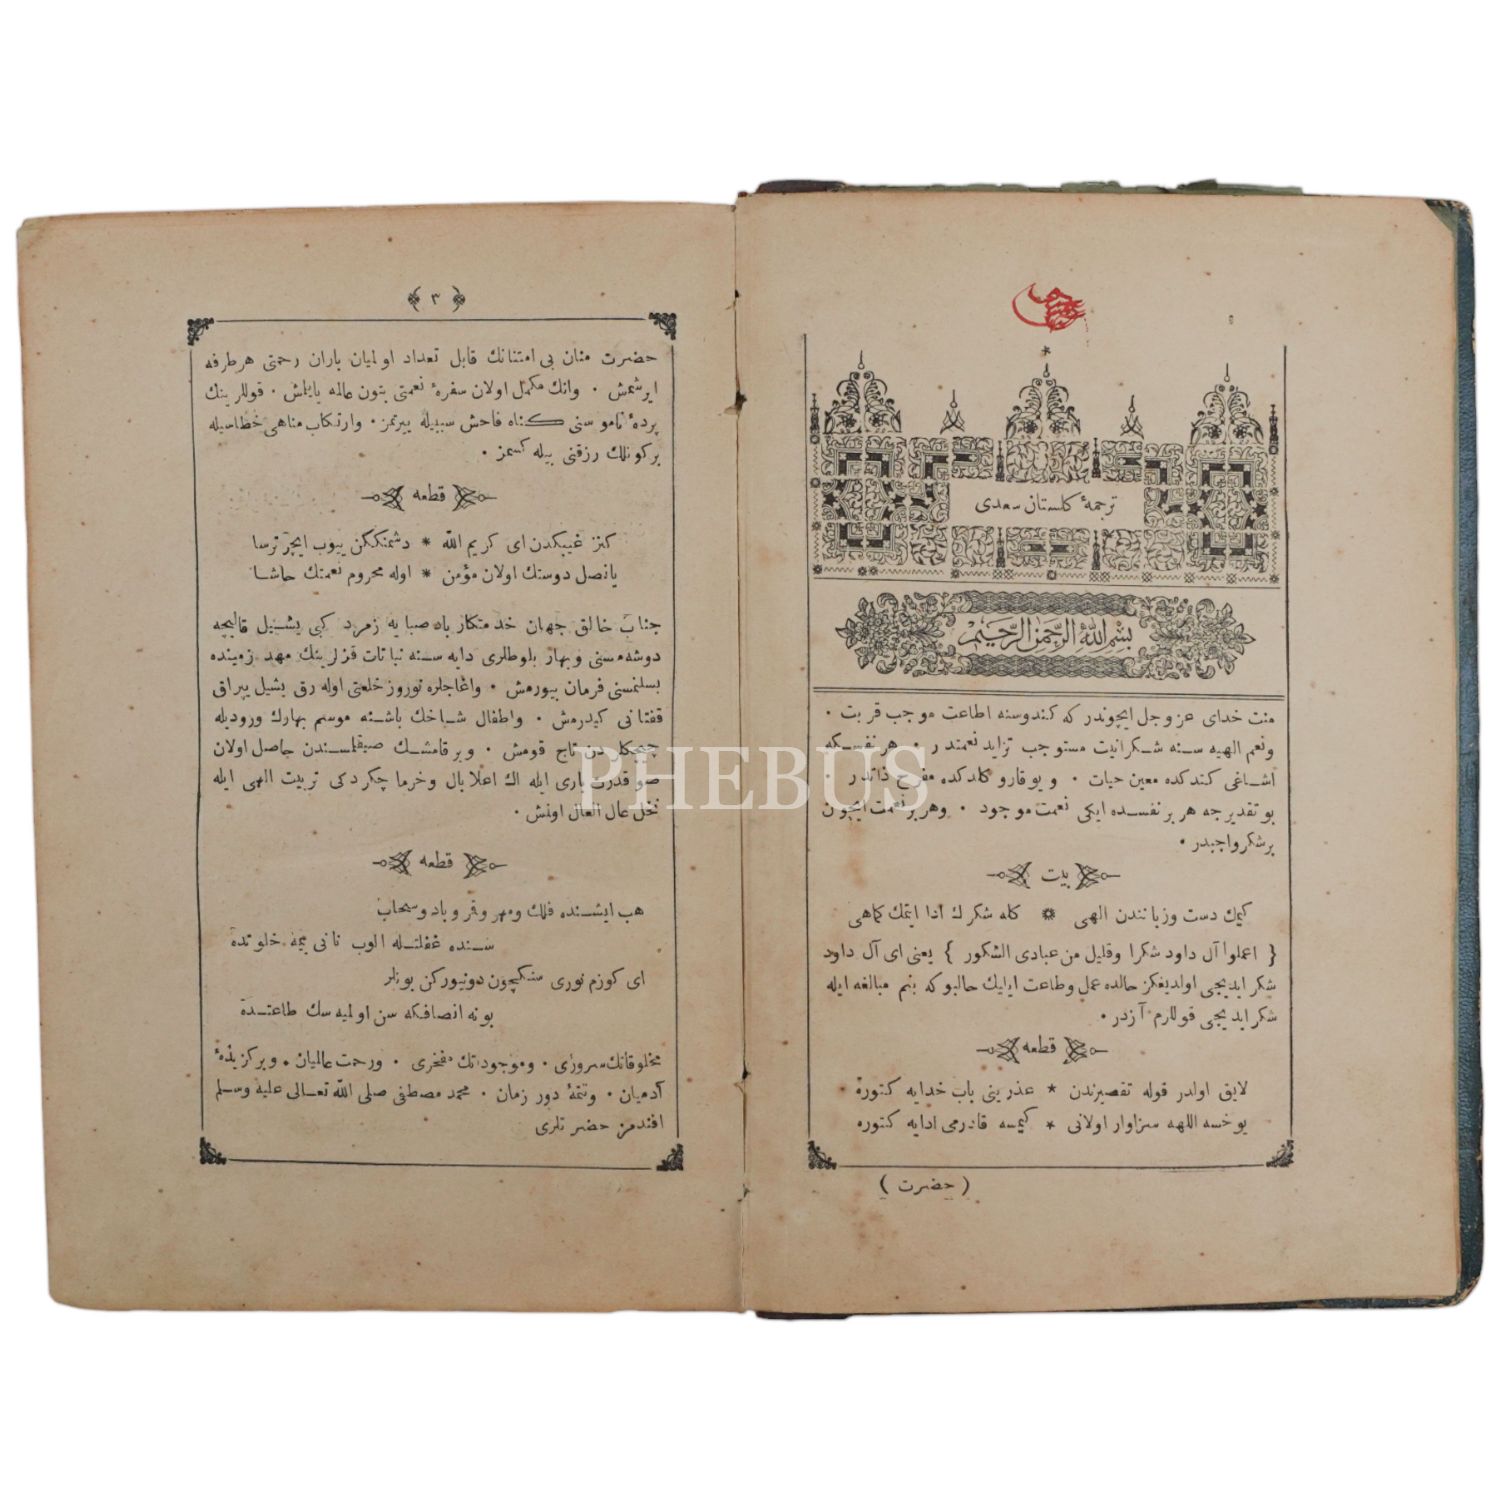 ترجمهٔ كلستان سعدی
بسم الله الرحمن الرحيم
منت خدای عزوجل ایچوندر كه كندوسنه اطاعت موجب قربت ·
ونعم الهیه سنه شكرانیت مستوجب تزاید نعمتدر · هر نفسكه
اشاغی كندكده معین حیات · ویوقارو كلدكده مفرح ذاتدر ·
بوتقدیرجه هر برنفسده ایكی نعمت موجود · وهر برنعمت ایچون
برشكر واجبدر ·
بیت
كیمك دست وزبانندن الهی * كله شكرك ادا ایتمك كماهی
{ اعملوا آل داود شكرا وقلیل من عبادی الشكور } یعنی ای آل داود
شكر ایدیجی اولدیغكز حالده عمل وطاعت ایدیك حالبوكه بنم مبالغه ایله
شكر ایدیجی قوللرم آزدر ·
قطعه
لایق اولدر قوله تقصیرندن * عذرینی باب خدایه كتوره
یوخسه اللهه سزاوار اولانی * كیمسه قادرمی ادایه كتوره
( حضرت )
﴿ ٣ ﴾
حضرت منان بی امتنانك قابل تعداد اولمیان باران رحمتی هر طرفه
ایرشمش · وانك مكمل اولان سفرهٔ نعمتی بتون عالمه یایلمش · قوللرینك
پردهٔ ناموسنی كناه فاحش سببیله ییرتمز · وارتكاب مناهی خطاسیله
بركونلك رزقنی بیله كسمز ·
قطعه
كنز غیبكدن ای كریم الله * دشمنككن ییوب ایچر ترسا
یا نصل دوستك اولان مؤمن * اوله محروم نعمتك حاشا
جناب خالق جهان خدمتكار باد صبایه زمرد كبی یشیل قالیچه
دوشه مسنی وبهار بلوطلری دایه سنه نباتات قزلرینك مهد زمینده
بسلنمسنی فرمان بیورمش · واغاجلره نوروز خلعتی اوله رق یشیل یپراق
قفتانی كیدرمش · واطفال شاخك باشنه موسم بهارك ورودیله
چیچكلردن تاج قومش · وبر قامشك صیقلمسندن حاصل اولان
صو قدرت باری ایله اك اعلا بال وخرما چكردكی تربیت الهی ایله
نخل عال العال اولمش ·
قطعه
هب ایشنده فلك ومهر وقمر وباد وسحاب
سنده غفلتله الوب نانی یمه خلوتده
ای كوزم نوری سنكچون دونیوركن بونلر
بونه انصافكه سن اولمیه سك طاعتده
مخلوقاتك سروری · وموجوداتك مفخری · ورحمت عالمیان · وبركزیدهٔ
آدمیان · وتتمهٔ دور زمان · محمد مصطفی صلی الله تعالی علیه وسلم
افندمز حضرتلری
PHEBUS